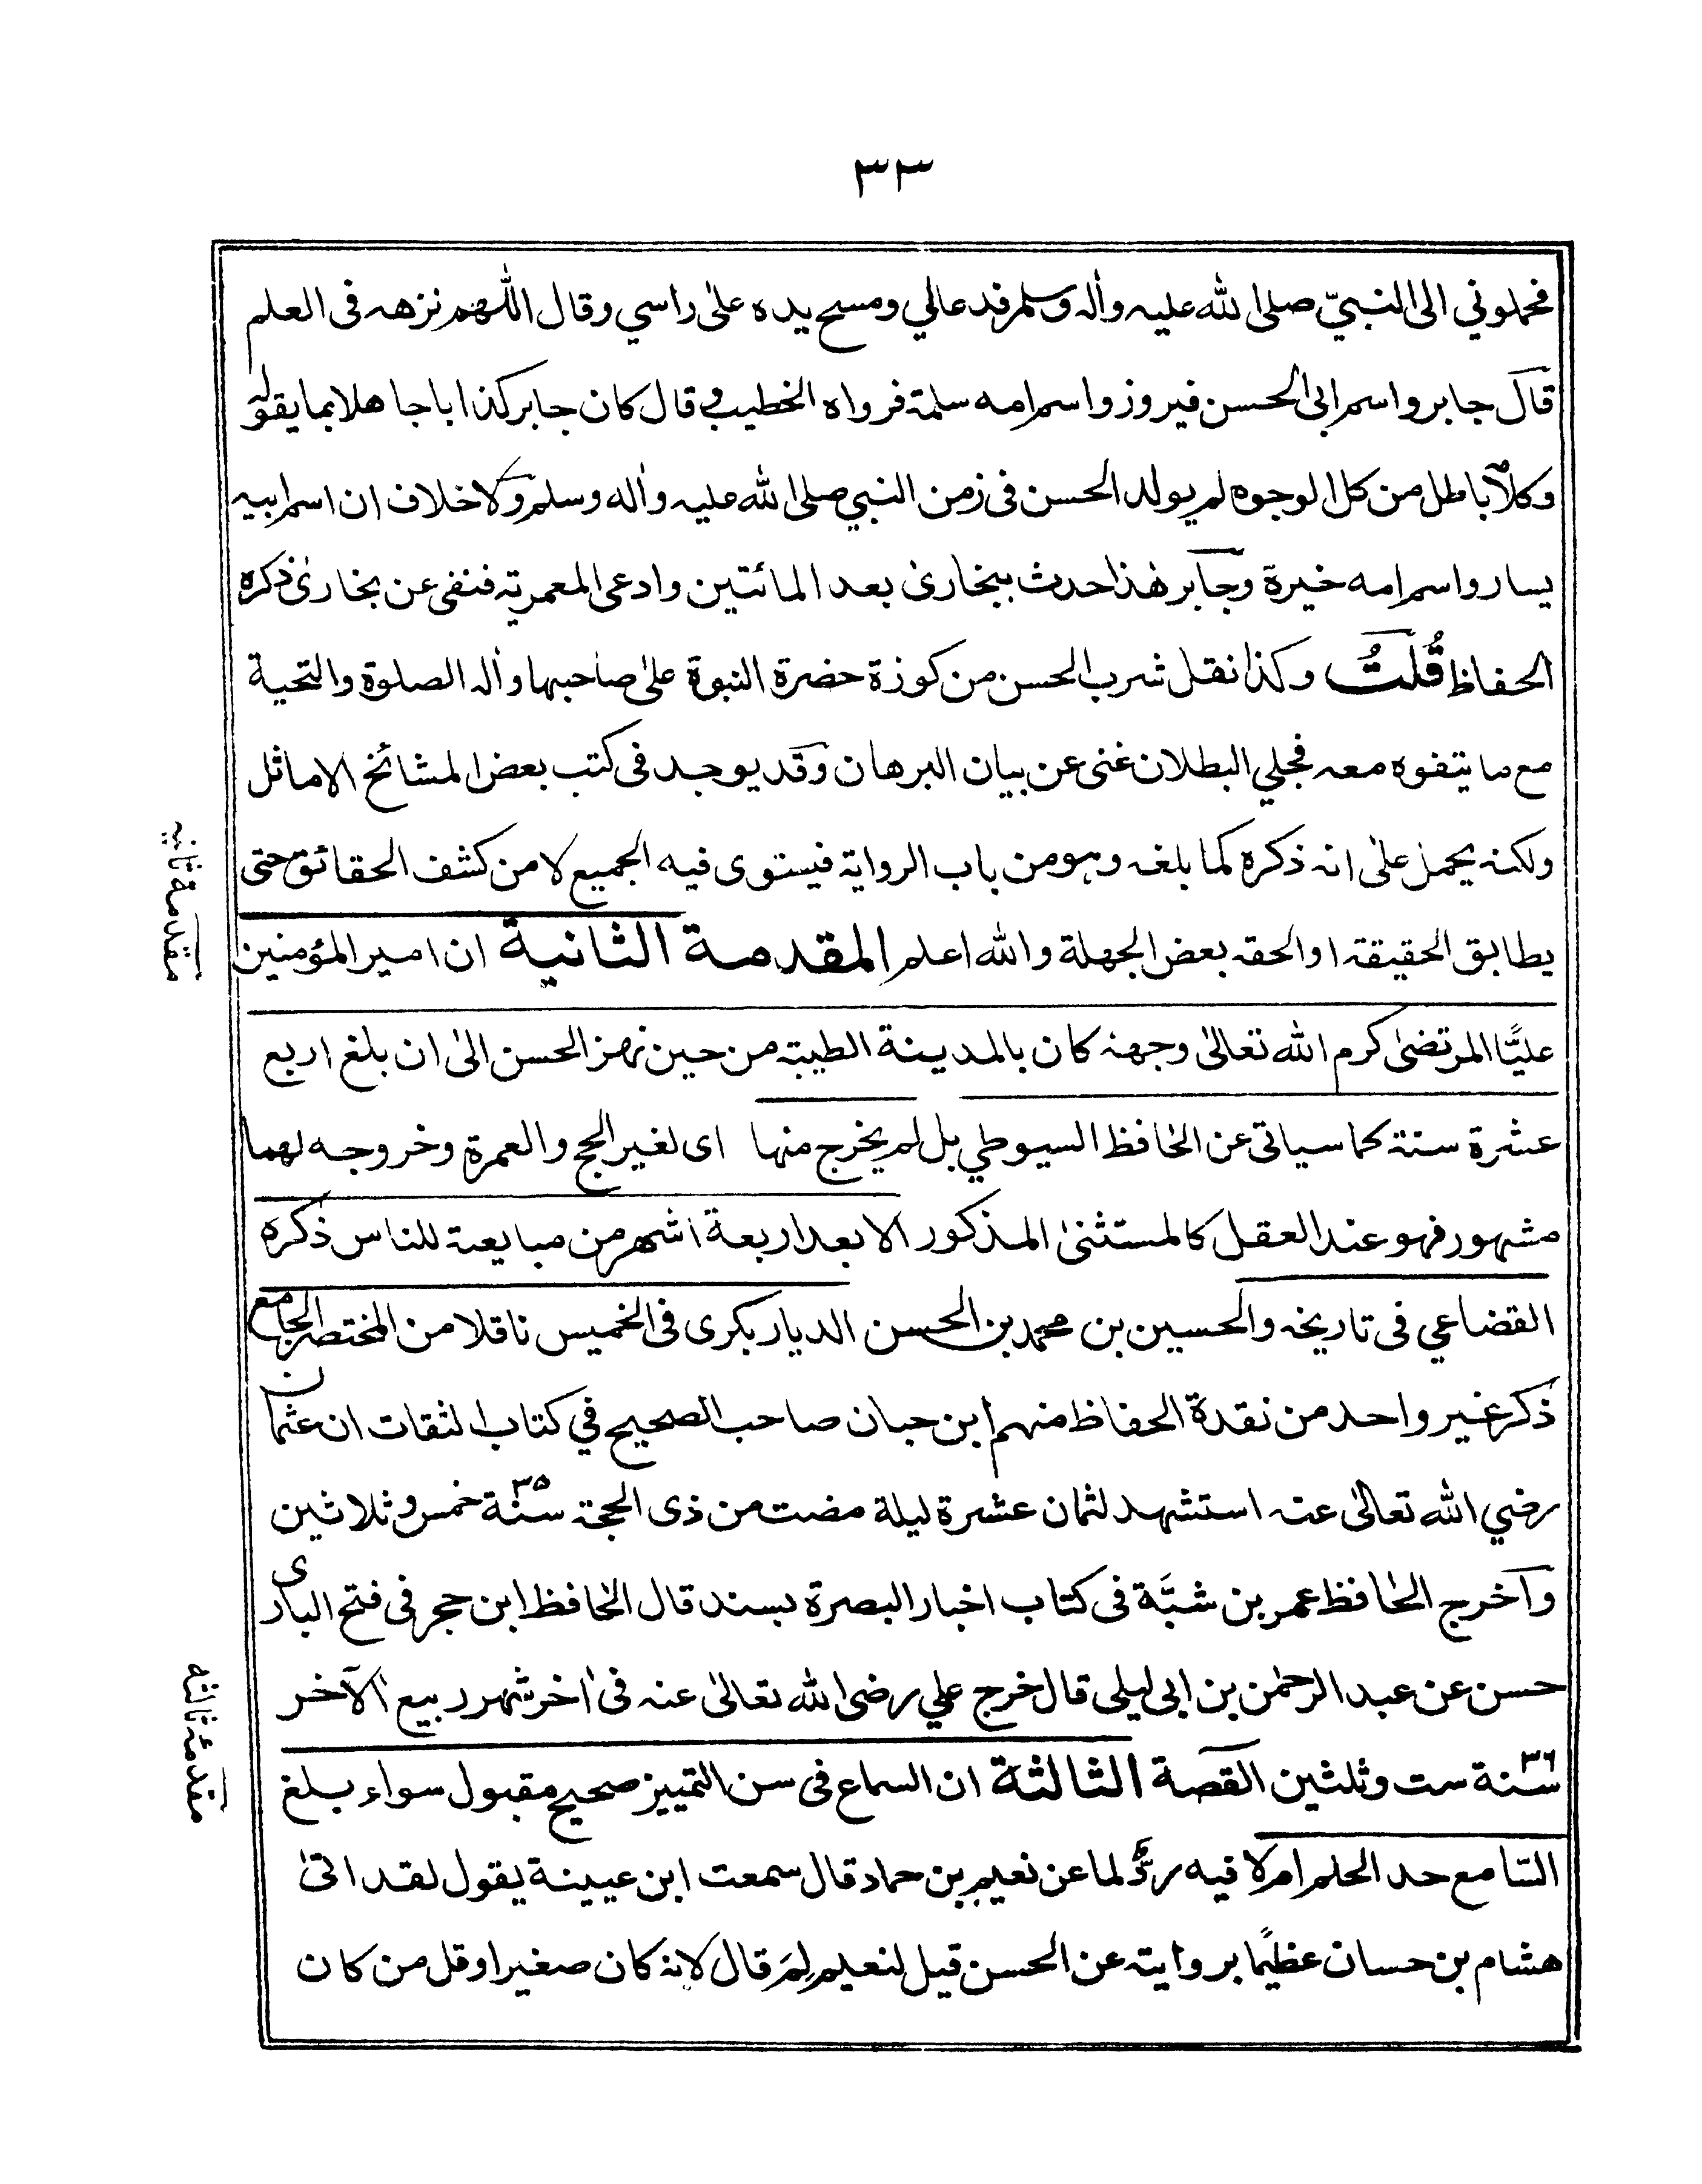 ٣٣
فحملوني الى النبيّ صلى الله عليه واله وسلم فدعالي ومسح يده على راسي وقال اللهم نزهه فى العلم
قال جابر واسم ابى الحسن فيروز واسم امه سلمة فرواه الخطيب وقال كان جابر كذابا جاهلا بما يقوله
وكلا باطل من كل الوجوه لم يولد الحسن فى زمن النبي صلى الله عليه واله وسلم ولا خلاف ان اسم ابيه
يسار واسم امه خيرة وجابر هذا حدث ببخارى بعد المائتين وادعى المعمرية فنفى عن بخارى ذكره
الحفاظ قُلتُ وكذا نقل شرب الحسن من كوزة حضرة النبوة على صاحبها واله الصلوة والتحية
مع ما يتفوه معه فجلي البطلان غنى عن بيان البرهان وقد يوجد فى كتب بعض المشائخ الاماثل
ولكنه يحمل على انه ذكره كما بلغه وهو من باب الرواية فيستوى فيه الجميع لا من كشف الحقائق حتى
يطابق الحقيقة او الحقه بعض الجهلة والله اعلم المقدمة الثانية ان امير المؤمنين
مقدمة ثانيه
عليًّا المرتضى كرم الله تعالى وجهه كان بالمدينة الطيبة من حين نهز الحسن الى ان بلغ اربع
عشرة سنة كما سياتى عن الحافظ السيوطي بل لم يخرج منها اى لغير الحج والعمرة وخروجه لهما
مشهور فهو عند العقل كالمستثنى المذكور الا بعد اربعة اشهر من مبايعة للناس ذكره
القضاعي فى تاريخه والحسين بن محمد بن الحسن الديار بكرى فى الخميس ناقلا من المختصر الجامع
ذكر غير واحد من نقدة الحفاظ منهم ابن حبان صاحب الصحيح في كتاب الثقات ان عثمان
رضي الله تعالى عنه استشهد لثمان عشرة ليلة مضت من ذى الحجة سنة ٣٥ خمس وثلاثين
وآخرج الحافظ عمر بن شبَّة فى كتاب اخبار البصرة بسند قال الحافظ ابن حجر فى فتح البارى
حسن عن عبد الرحمن بن ابى ليلى قال خرج علي رضى الله تعالى عنه فى اخر شهر ربيع الآخر
سنة ٣٦ ست وثلثين القصة الثالثة ان السماع فى سن التمييز صحيح مقبول سواء بلغ
مقدمۂ ثالثه
السامع حد الحلم ام لا فيه ردٌّ لما عن نعيم بن حماد قال سمعت ابن عيينة يقول لقد اتى
هشام بن حسان عظيمًا بروايته عن الحسن قيل لنعيم لِمَ قال لانه كان صغيرا وقل من كان